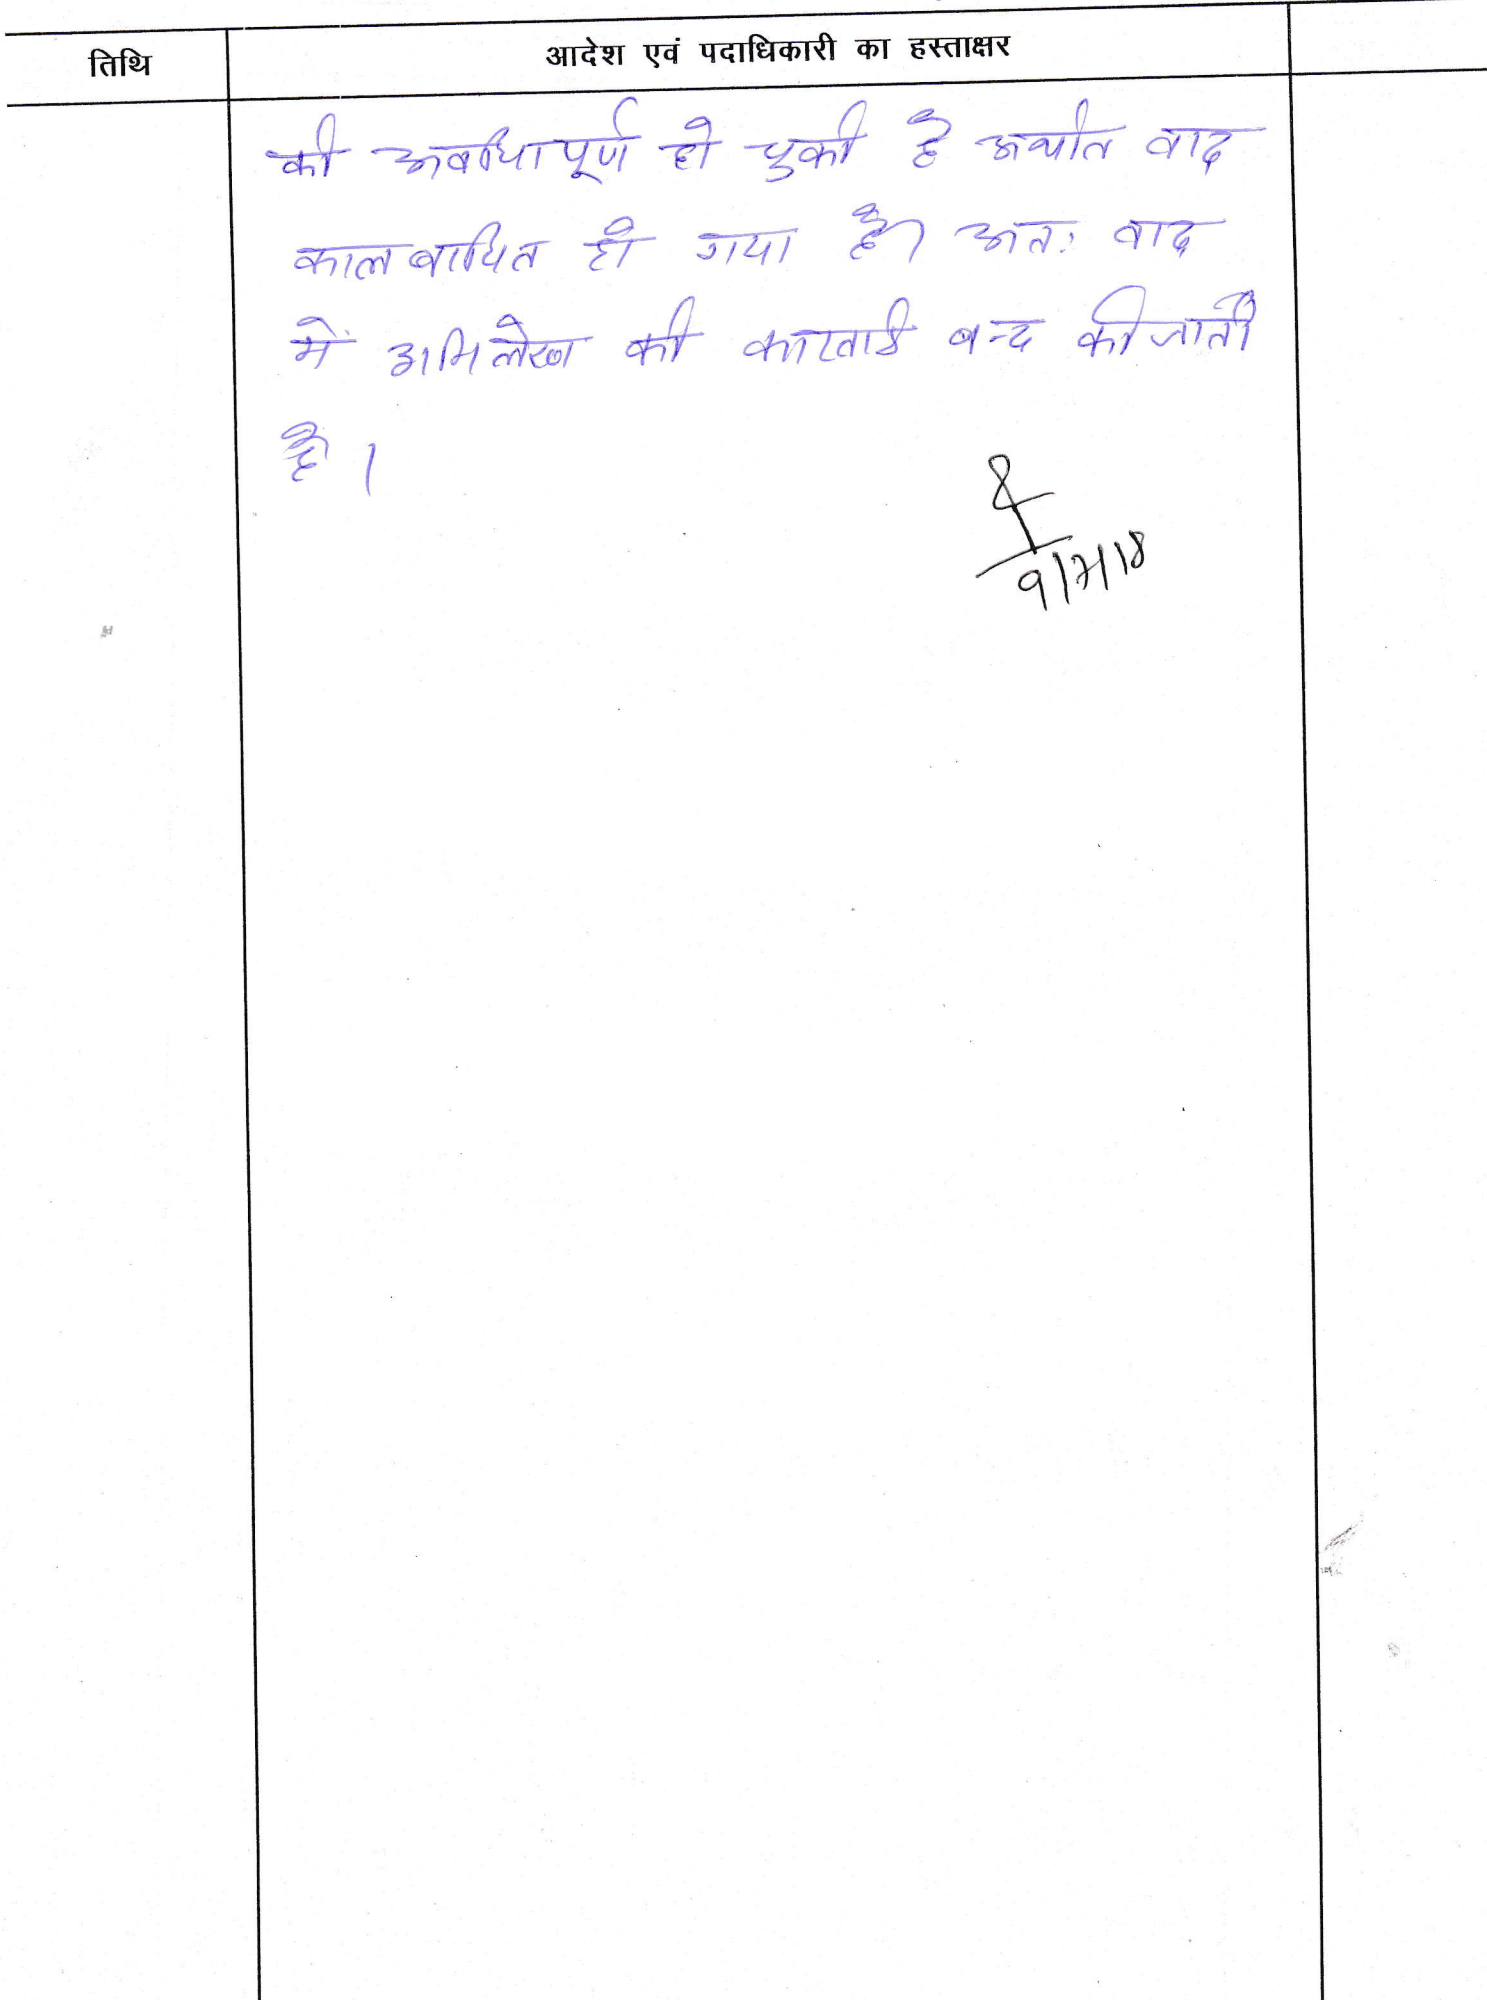 तिथि
आदेश एवं पदाधिकारी का हस्ताक्षर
की अवधि पूर्ण हो चुकी है अर्थात वाद
कालबाधित हो गया है। अतः वाद
में अभिलेख की कारवाई बन्द की जाती
है।
9/7/18